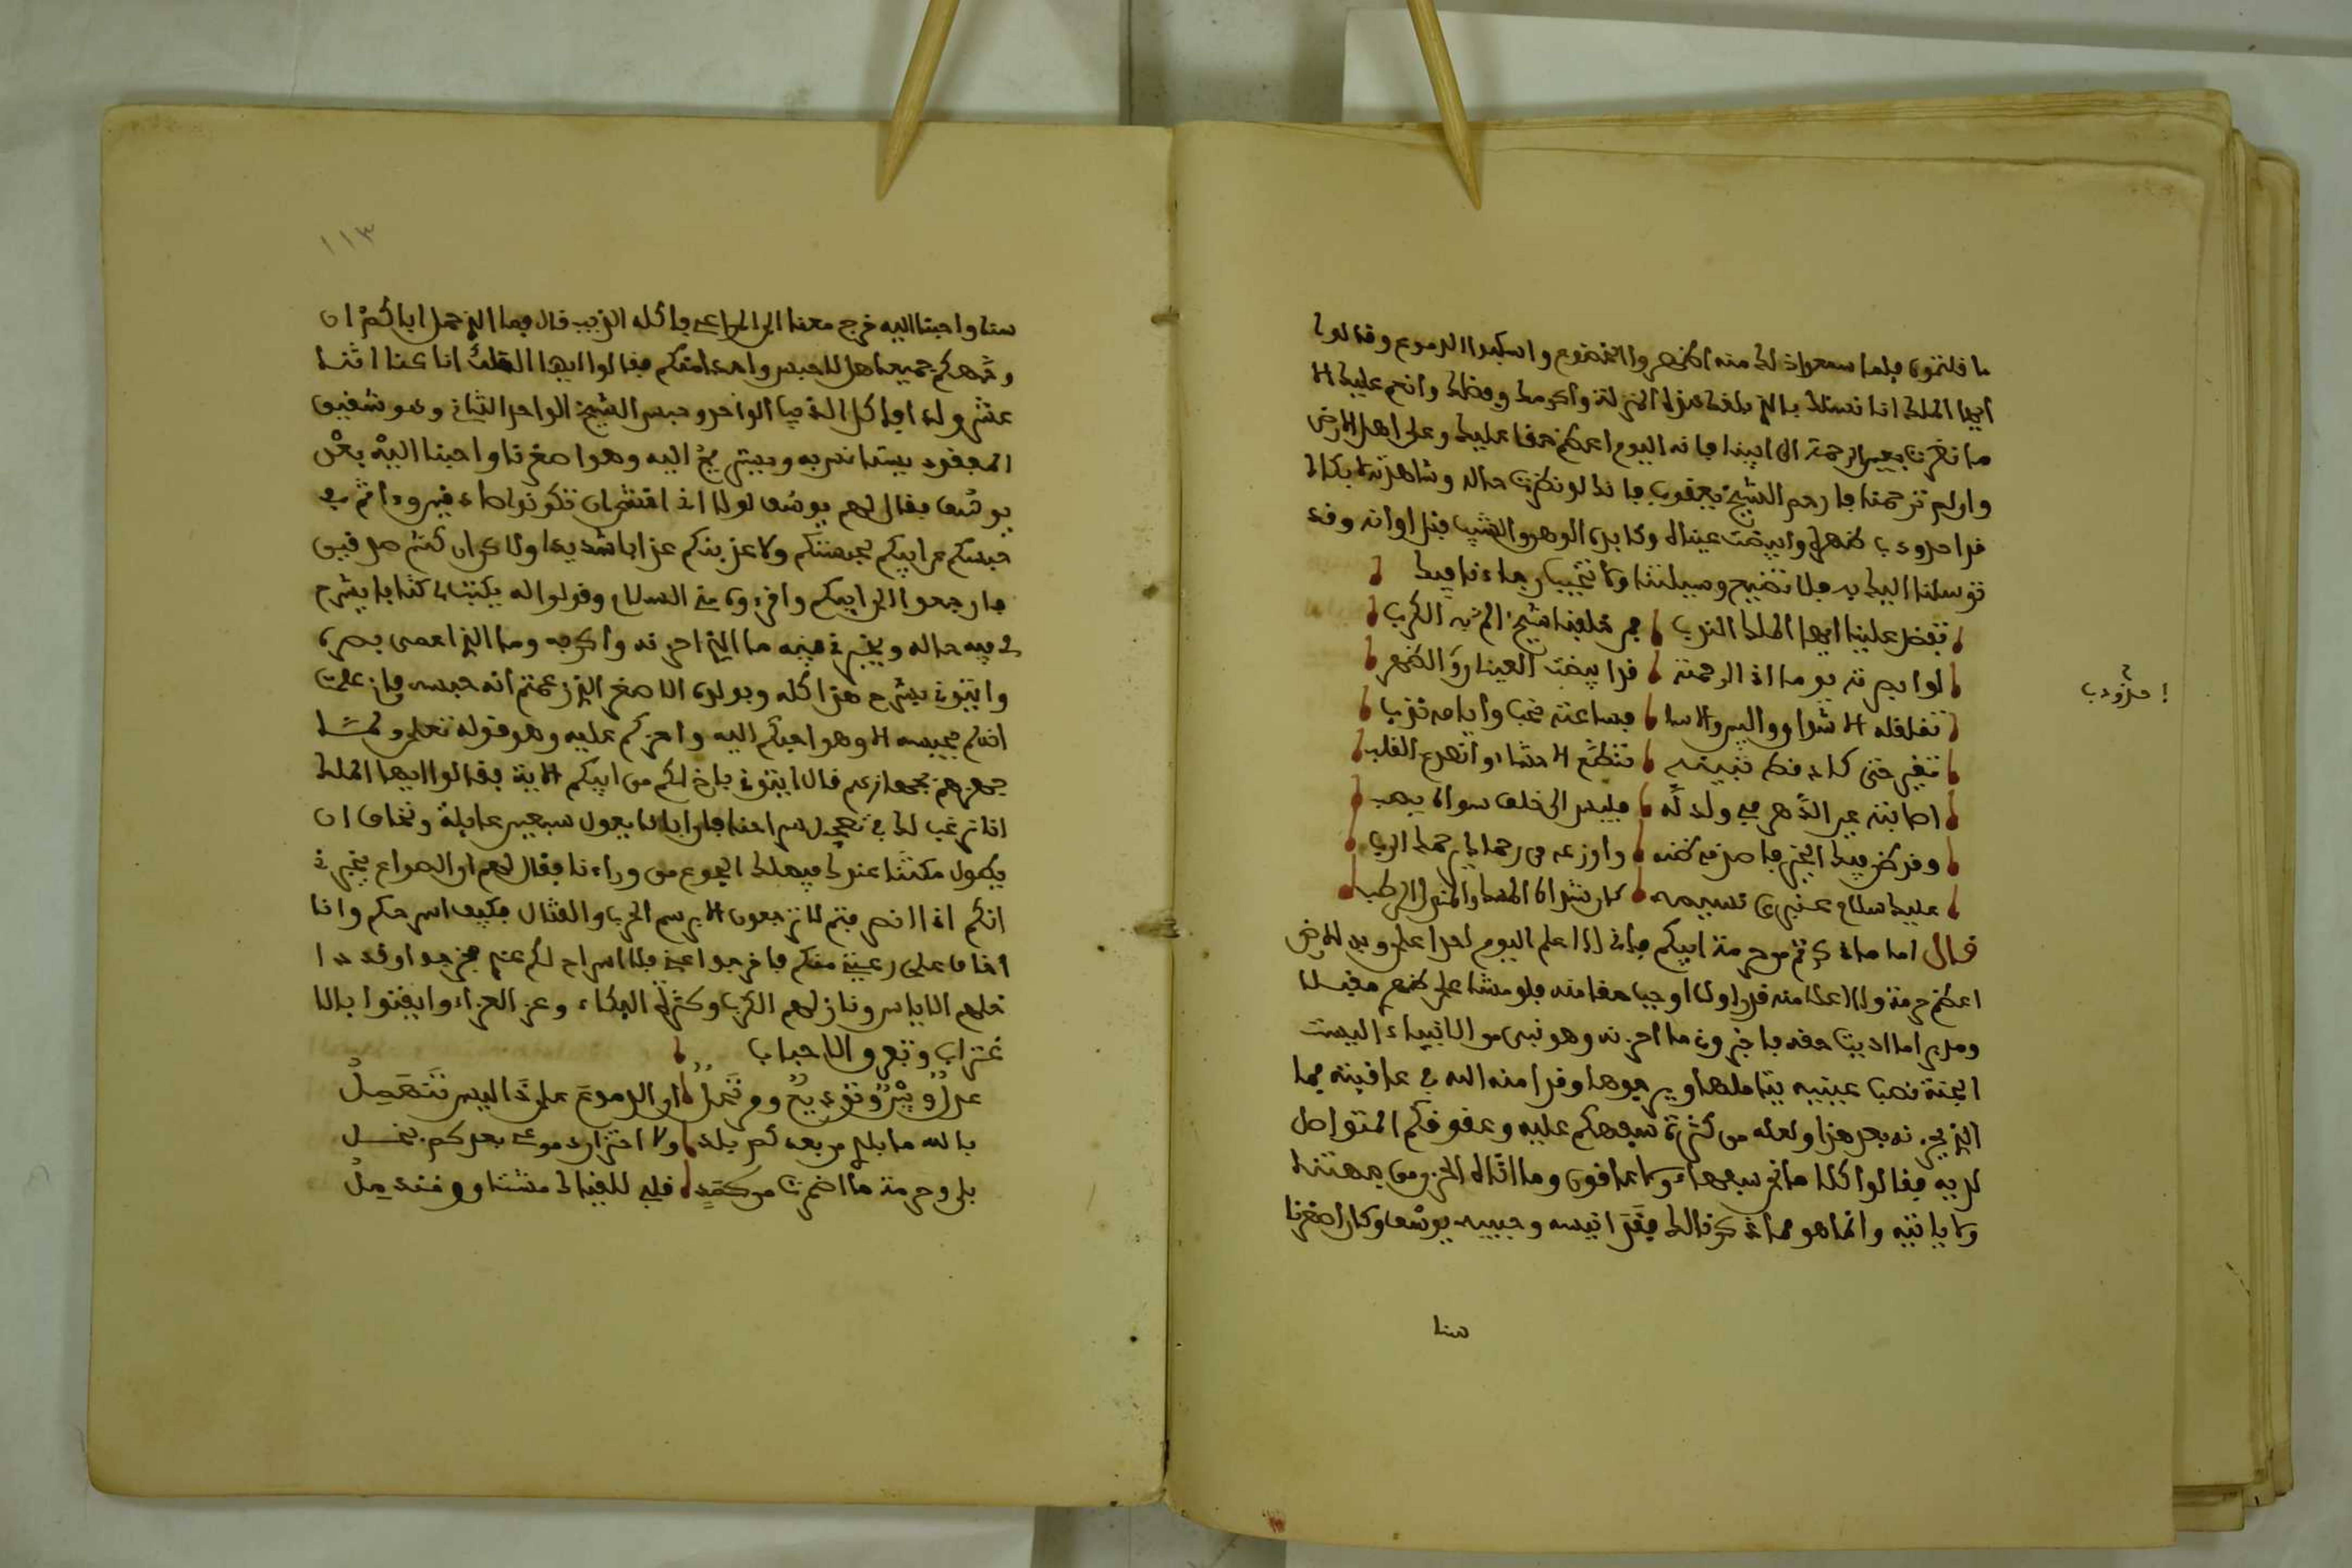 ما قلتموه فلما سمعوا ذلك منه اظهروا الخضوع واسكبوا الدموع وقالوا
ايها الملك انا نسئلك بالذي بلغك هذه المنزلة واكرمك وفضلك وانعم عليك الا
ما نظرت بعين الرحمة الى ابينا فانه اليوم اعظم حقا عليك وعلى اهل الارض
وان لم ترحمنا فارحم الشيخ يعقوب فانك لو نظرت حاله وشاهدته بكاك
قد احدودب ظهره وابيضت عيناه وكابد الوهن والشيب قبل اوانه وقد
توسلنا اليك به فلا تضيع وسيلتنا ولا تخيب رجاءنا فيك
تفضل علينا ايها الملك الندب فمن خلفنا شيخ به الكرب
لو ابصرته يوما اذا لرحمته قد ابيضت العينان والظهر
تقلقله الاشواق والبين والاسا فساعته نحب وايامه ندب
تغير حتى كاد تقطع الاحشاء وانصدع القلب
اصابته عين الدهر في ولد له فليس الى خلق سواه يصب
وقد ظن فيك الخير فاصدق ظنه واوزعه من رحماك يرحمك الرب
عليك سلام عنبري نسيمه كان شذاه المسك والمندل الرطب
قال اما ما ذكرتم من حرمة ابيكم فاني لا اعلم اليوم احدا على وجه الارض
اعظم حرمة ولا اعلا منه قدرا ولا اوجب حقا منه فلو مشا على ظهر مقبلا
ومدبرا ما اديت حقه فاخبروني ما احزنه وهو نبي من الانبياء اليست
الجنة نصب عينيه يتاملها ويرجوها وقد امنه الله في عاقبته فما
الذي يحزنه بعد هذا ولعله من كثرة سفهكم عليه وعقوقكم المتواصل
لديه فقالوا كلا ما نحن سفهاء ولا عاقون وما اتاه الحزن من جهتنا
ولا ياتيه وانما هو مما ذكرنا لك فقد انيسه وحبيبه يوسف وكان اصغرنا
سنا
احدودب
١١٣
سنا واحبنا اليه خرج معنا الى المراعي فاكله الذيب قال فما الذي حمل اباكم ان
وجهكم جميعا هلا حبس واحدا منكم فقالوا ايها الملك انا كنا اثنا
عشر ولدا فاكل الذيب الواحد وحبس الشيخ الواحد الثاني وهو شقيق
المفقود يستانس به ويستريح اليه وهو اصغرنا واحبنا اليه بعد
يوسف فقال لهم يوسف لولا اني اخشى ان تكونوا صادقين واثم في
حبسكم عن ابيكم لحبستكم ولاعذبنكم عذابا شديدا ولاكن ان كنتم صادقين
فارجعوا الى ابيكم واقرءوه مني السلام وقولوا له يكتب لي كتابا يشرح
لي فيه حاله ويخبرني فيه ما الذي احزنه واكربه وما الذي اعمى بصره
وايتوني بشرح هذا كله وبولده الاصغر الذي زعمتم انه حبسه فان علمت
انكم حبسه الا وهو احبكم اليه واعزكم عليه وهو قوله تعلى ولما
جهزهم بجهازهم قال ايتوني باخ لكم من ابيكم الاية فقالوا ايها الملك
انا نرغب لك في تعجيل سراحنا فان ابانا يعول سبعين عايلة ونخاف ان
يطول مكثنا عندك فيهلك الجوع من وراءنا فقال لهم ان الصواع يخبرني
انكم اذا انصرفتم لا ترجعون الا برسم الحرب والقتال فكيف اسرحكم وانا
اخاف على رعيتي منكم فاخرجوا عني فلا سراح لكم عندي فخرجوا وقد
خلهم الاياس ونازلهم الكرب وكثرة البكاء وعز العزاء وايقنوا بالا
غتراب وتفرق الاحباب
ان الدموع على ذا البين تنهمل
بالله ما بلدي من بعدكم بلد ولا اختزان دموعي بعدكم بخل
بلى وحرمة ما اضمرت من كمد قلبي للقياك مشتاق ومندمل